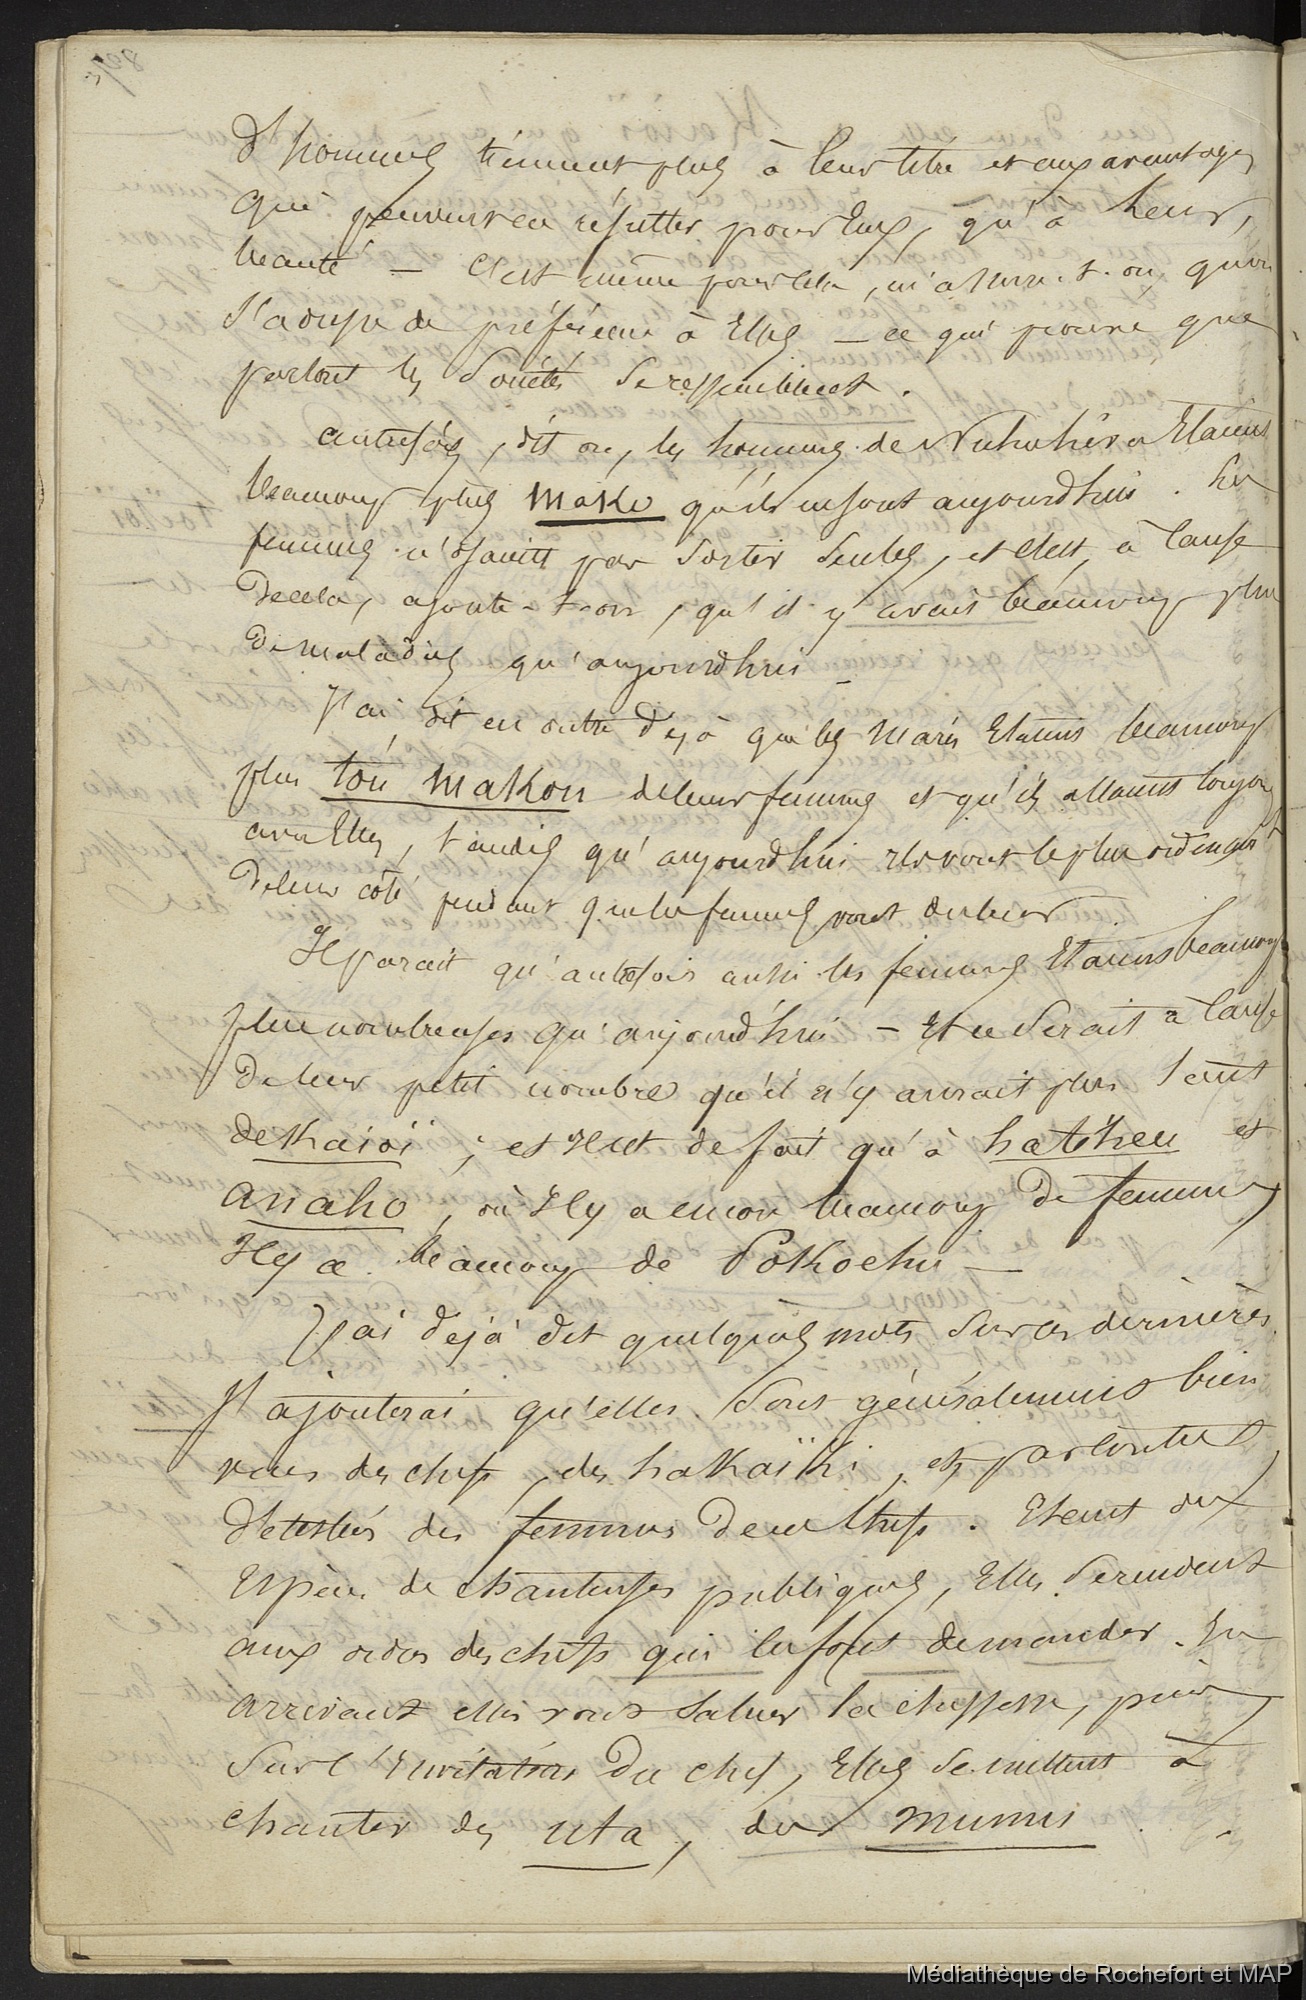 d'hommes tiennent plus à leur titre et aux avantages
qui peuvent en résulter pour Eux, qu'à leur
beauté — C'est même pour cela, m'assure-t-on, qu'on
s'adresse de préférence à Elles — ce qui prouve que
partout les Sociétés se ressemblent.
autrefois, dit on, les hommes de Nukuhiva Etaient
beaucoup plus mako qu'ils ne sont aujourd'hui. Les
femmes n'osaient pas sortir seules, et c'est, à cause
de cela, ajoute-t-on, qu'il y avait beaucoup plus
de maladies qu'aujourd'hui —
J'ai dit en outre déjà que les maris Etaient beaucoup
plus toú makou de leurs femmes et qu'ils allaient toujours
avec Elles, tandis qu'aujourd'hui ils vont le plus ordinairt
de leur côté pendant que les femmes vont du leur
Il parait qu'autrefois aussi les femmes Etaient beaucoup
plus nombreuses qu'aujourd'hui — Et ce serait à cause
de leur petit nombre qu'il n'y aurait plus tant
de Kaioï ; et Il est de fait qu'à hatiheu et
anaho, où Il y a encore beaucoup de femmes,
Il y a beaucoup de Pokoehu —
J'ai déjà dit quelques mots sur ces dernières.
J'ajouterai qu'elles sont généralement bien
vues des chefs, des hakaïki, et par contre
détestées des femmes de ces chefs. Etant des
Espèces de chanteuses publiques, Elles se rendent
aux ordres des chefs qui les font demander. En
arrivant elles vont saluer la cheffesse, puis
sur l'Invitation du chef, Elles se mettent à
chanter des uta, des mumu
Médiathèque de Rochefort et MAP